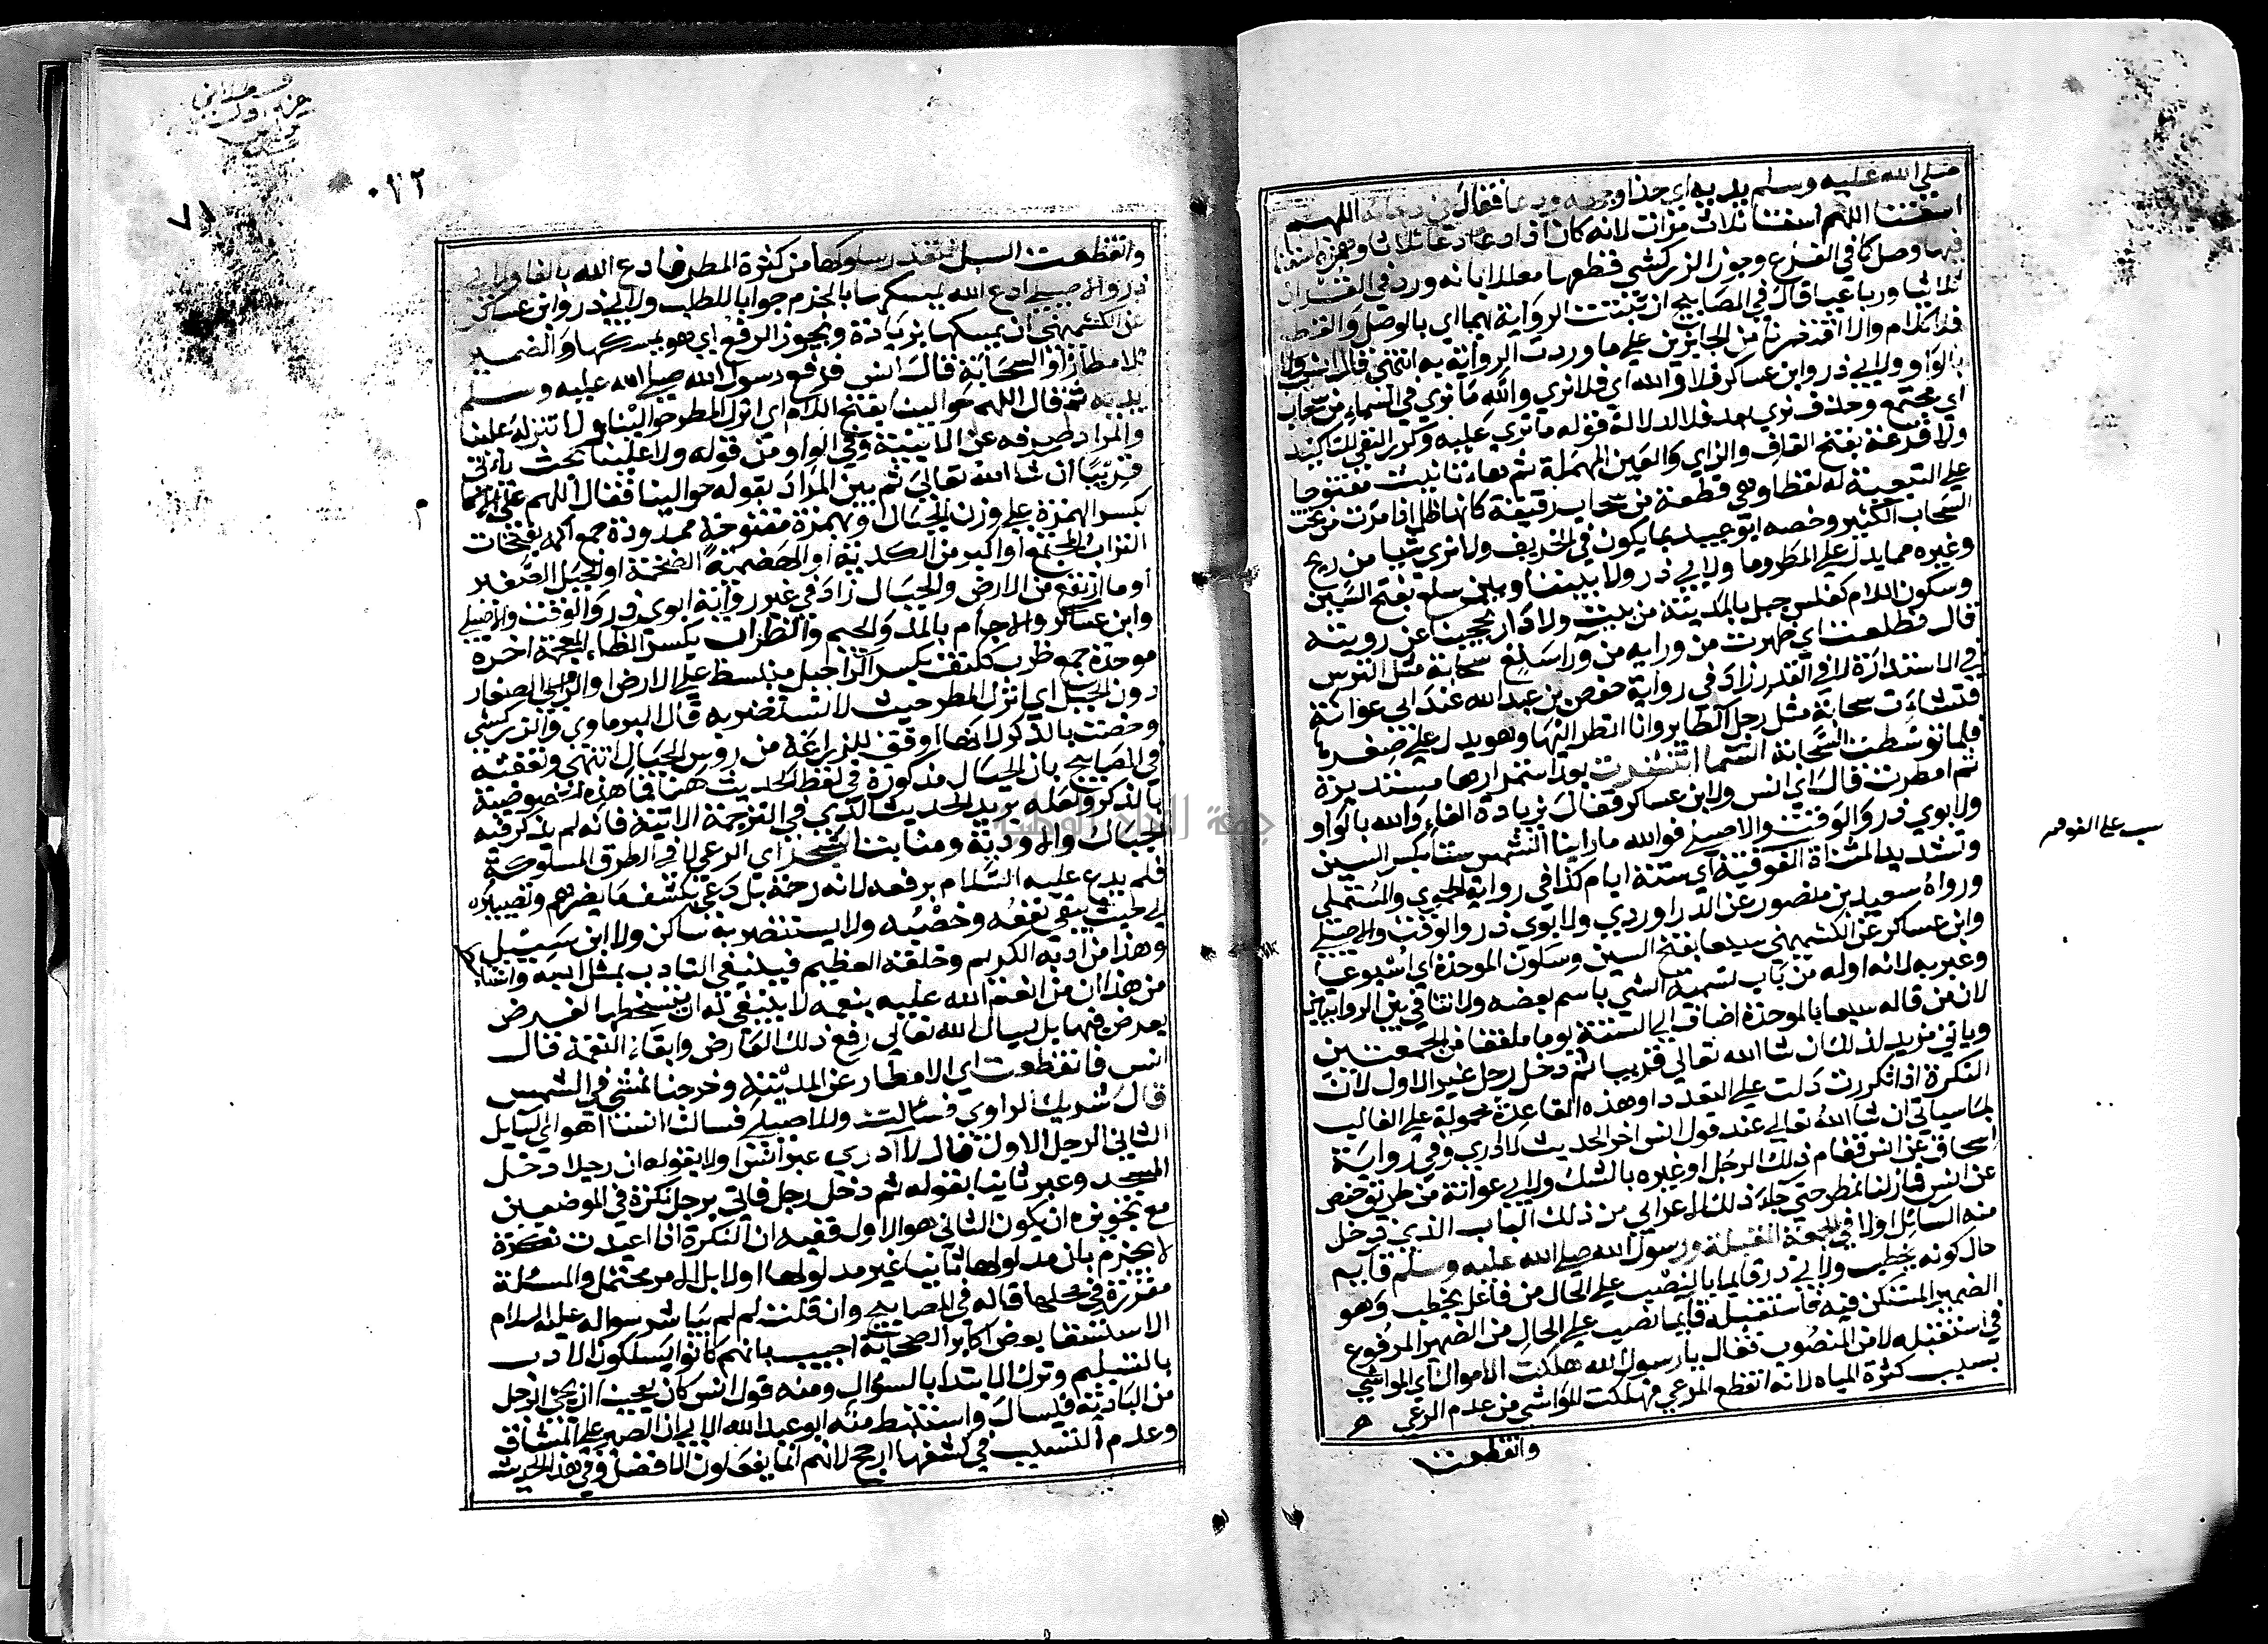 صلى الله عليه وسلم يديه اي حذا وجهه ودعا فقال في دعائه اللهم
اسقنا اللهم اسقنا ثلاث مرات لانه كان اذا دعا دعا ثلاثا وهمزة اسقنا
فيها وصل كما في الفرع وجوز الزركشي قطعها معللا بانه ورد في القران
ثلاثيا ورباعيا قال في المصابيح ان ثبتت الرواية بهما اي بالوصل والقطع
فلا كلام والا اقتصرنا من الجايزين على ما وردت الرواية به انتهى قال انس ولا
بالواو ولابي ذر وابن عساكر فلا والله اي فلا نرى والله ما نرى في السماء من سحاب
اي مجتمع وحذف نرى بعد فلا لدلالة قوله ما نرى عليه وكرر النفي للتاكيد
ولا قزعة بفتح القاف والزاي والعين المهملة ثم هاء تانيث مفتوحا
على التبعية له لفظا وهي قطعة من سحاب رقيقة كانها ظل اذا مرت من تحت
السحاب الكثير وخصه ابو عبيد بما يكون في الخريف ولا نرى شيا من ريح
وغيره مما يدل على المطر وما ولابي ذر ولا بيننا وبين سلع بفتح السين
وسكون اللام كفلس جبل بالمدينة من بيت ولا دار يحجبنا عن رويته
قال فطلعت اي ظهرت من ورايه من ورا سلع سحابة مثل الترس
في الاستدارة لا في القدر زاد في رواية حفص بن عبد الله عند ابي عوانة
فنشات سحابة مثل رجل الطاير وانا انظر اليها وهو يدل على صغرها
فلما توسطت السحابة السما انتشرت بعد استمرارها مستديرة
ثم امطرت قال اي انس ولابن عساكر فقال بزيادة الفاء والله بالواو
ولابوي ذر والوقت والاصيلي فوالله ما راينا الشمس ستا بكسر السين
وتشديد المثناة الفوقية اي ستة ايام كذا في رواية الحموي والمستملي
ورواه سعيد بن منصور عن الدراوردي ولابوي ذر والوقت والاصيلي
وابن عساكر عن الكشميهني سبعا بفتح السين وسكون الموحدة اي اسبوعا
وعبر به لانه اوله من باب تسمية الشي باسم بعضه ولا تنافي بين الروايتين
لان من قاله سبعا بالموحدة اضاف الى الستة يوما ملفقا من الجمعتين
وياتي مزيد لذلك ان شا الله تعالى قريبا ثم دخل رجل غير الاول لان
النكرة اذا تكررت دلت على التعدد او هذه القاعدة محمولة على الغالب
لما سياتي ان شا الله تعالى عند قول انس اخر الحديث لا ادري وفي رواية
اسحاق عن انس فقام ذلك الرجل او غيره بالشك ولابي عوانة من طريق حفص
عن انس فما زلنا نمطر حتى جاء ذلك الاعرابي من ذلك الباب الذي دخل
منه السائل اولا في الجمعة المقبلة ورسول الله صلى الله عليه وسلم قايم
حال كونه يخطب ولابي ذر قايما بالنصب على الحال من فاعل يخطب وهو
الضمير المستكن فيه فاستقبله قايما نصب على الحال من الضمير المرفوع
في استقبله لا من المنصوب فقال يا رسول الله هلكت الاموال اي المواشي
بسبب كثرة المياه لانه انقطع المرعى فهلكت المواشي من عدم الرعي
وانقطعت
وانقطعت السبل لتعذر سلوكها من كثرة المطر فادع الله بالفا ولابي
ذر والاصيلي ادع الله يمسكها بالجزم جوابا للطلب ولابي ذر وابن عساكر
عن الكشميهني ان يمسكها بزيادة ويجوز الرفع اي هو يمسكها والضمير
للامطار او السحابة قال انس فرفع رسول الله صلى الله عليه وسلم
يديه ثم قال اللهم حوالينا بفتح اللام اي انزل المطر حوالينا ولا تنزله علينا
والمراد صرفه عن الابنية وفي الواو من قوله ولا علينا بحث ياتي
قريبا ان شا الله تعالى ثم بين المراد بقوله حوالينا فقال اللهم على الاكام
بكسر الهمزة على وزن الجبال وبهمزة مفتوحة ممدودة جمع اكمة بفتحات
التراب المجتمع او اكبر من الكدية او الهضبة الضخمة او الجبل الصغير
او ما ارتفع من الارض والجبال زاد في غير رواية ابوي ذر والوقت والاصيلي
وابن عساكر والاجام بالمد والجيم والظراب بكسر الظاء المعجمة اخره
موحدة جمع ظرب ككتف بكسر الرا جبل منبسط على الارض او الروابي الصغار
دون الجبل اي انزل المطر حيث لا نستضر به قال البرماوي والزركشي
وخصت بالذكر لانها اوفق للزراعة من روس الجبال انتهى وتعقبه
في المصابيح بان الجبال مذكورة في لفظ الحديث هنا فما هذه الخصوصية
بالذكر ولعله يريد الحديث الذي في الترجمة الاتية فانه لم يذكر فيه
الجبال والاودية ومنابت الشجر اي المرعى لا في الطرق المسلوكة
فلم يدع عليه السلام برفعه لانه رحمة بل دعى بكشف ما يضرهم وتصييره
الى حيث يبقى نفعه وخصبه ولا يستضر به ساكن ولا ابن سبيل
وهذا من ادبه الكريم وخلقه العظيم فينبغي التادب بمثل ادبه واستنبط
من هذا ان من انعم الله عليه بنعمه لا ينبغي له ان يتسخطها لعارض
يعرض فيها بل يسال الله تعالى رفع ذلك العارض وابقاء النعمة قال
انس فانقطعت اي الامطار عن المدينة وخرجنا نمشي في الشمس
قال شريك الراوي فسالت وللاصيلي فسالت انسا اهو اي السايل
الثاني الرجل الاول قال لا ادري عبر انس اولا بقوله ان رجلا دخل
المسجد وعبر ثانيا بقوله ثم دخل رجل فاتي برجل نكرة في الموضعين
مع تجويزه ان يكون الثاني هو الاول ففيه ان النكرة اذا اعيدت نكرة
لا يجزم بان مدلولها ثانيا غير مدلولها اولا بل الامر محتمل والمسئلة
مقررة في محلها قاله في المصابيح وان قلت لم لم يباشر سواله عليه السلام
الاستسقا بعض اكابر الصحابة اجيب بانهم كانوا يسلكون الادب
بالتسليم وترك الابتدا بالسؤال ومنه قول انس كان يعجبنا ان يجي الرجل
من البادية فيسال واستنبط منه ابو عبد الله الابي ان الصبر على المشاق
وعدم التسبب في كشفها ارجح لانهم انما يفعلون الافضل وفي هذا الحديث
٧١
جامعة النجاح الوطنية